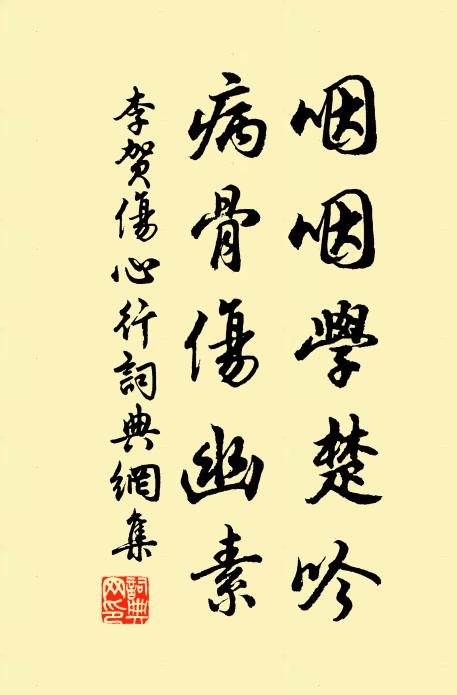 咽咽學楚吟
病骨傷幽素
李贺傷心行詞典網集
詞典
网印